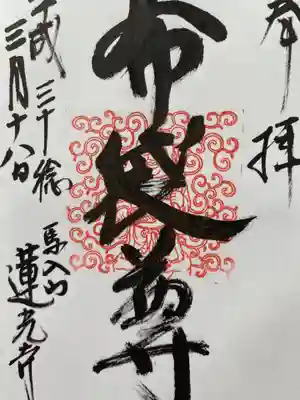 奉拝
布袋尊
平成三十稔
三月十八日
馬入山
蓮光寺